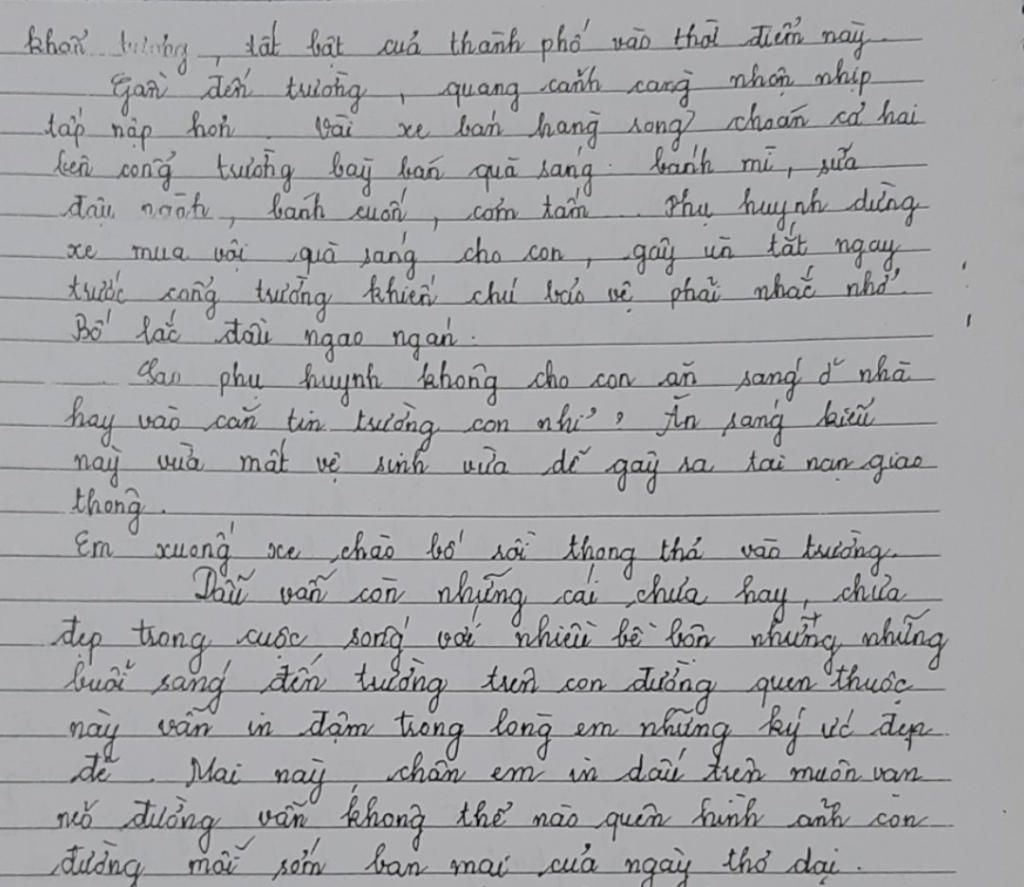 khẩn trương, tất bật của thành phố vào thời điểm này.
Gần đến trường, quang cảnh càng nhộn nhịp
tấp nập hơn. Vài xe bán hàng rong choán cả hai
bên cổng trường bày bán quà sáng: bánh mì, sữa
đậu nành, bánh cuốn, cơm tấm... Phụ huynh dừng
xe mua vội quà sáng cho con, gây ùn tắt ngay
trước cổng trường khiến chú bảo vệ phải nhắc nhở.
Bố lắc đầu ngao ngán.
Sao phụ huynh không cho con ăn sáng ở nhà
hay vào căn tin trường con nhỉ? Ăn sáng kiểu
này vừa mất vệ sinh vừa dễ gây ra tai nạn giao
thông.
Em xuống xe chào bố rồi thong thả vào trường.
Dẫu vẫn còn những cái chưa hay, chưa
đẹp trong cuộc sống với nhiều bề bộn nhưng những
buổi sáng đến trường trên con đường quen thuộc
này vẫn in đậm trong lòng em những ký ức đẹp
đẽ. Mai này, chân em in dấu trên muôn vạn
nẻo đường vẫn không thể nào quên hình ảnh con
đường mỗi sớm ban mai của ngày thơ dại.